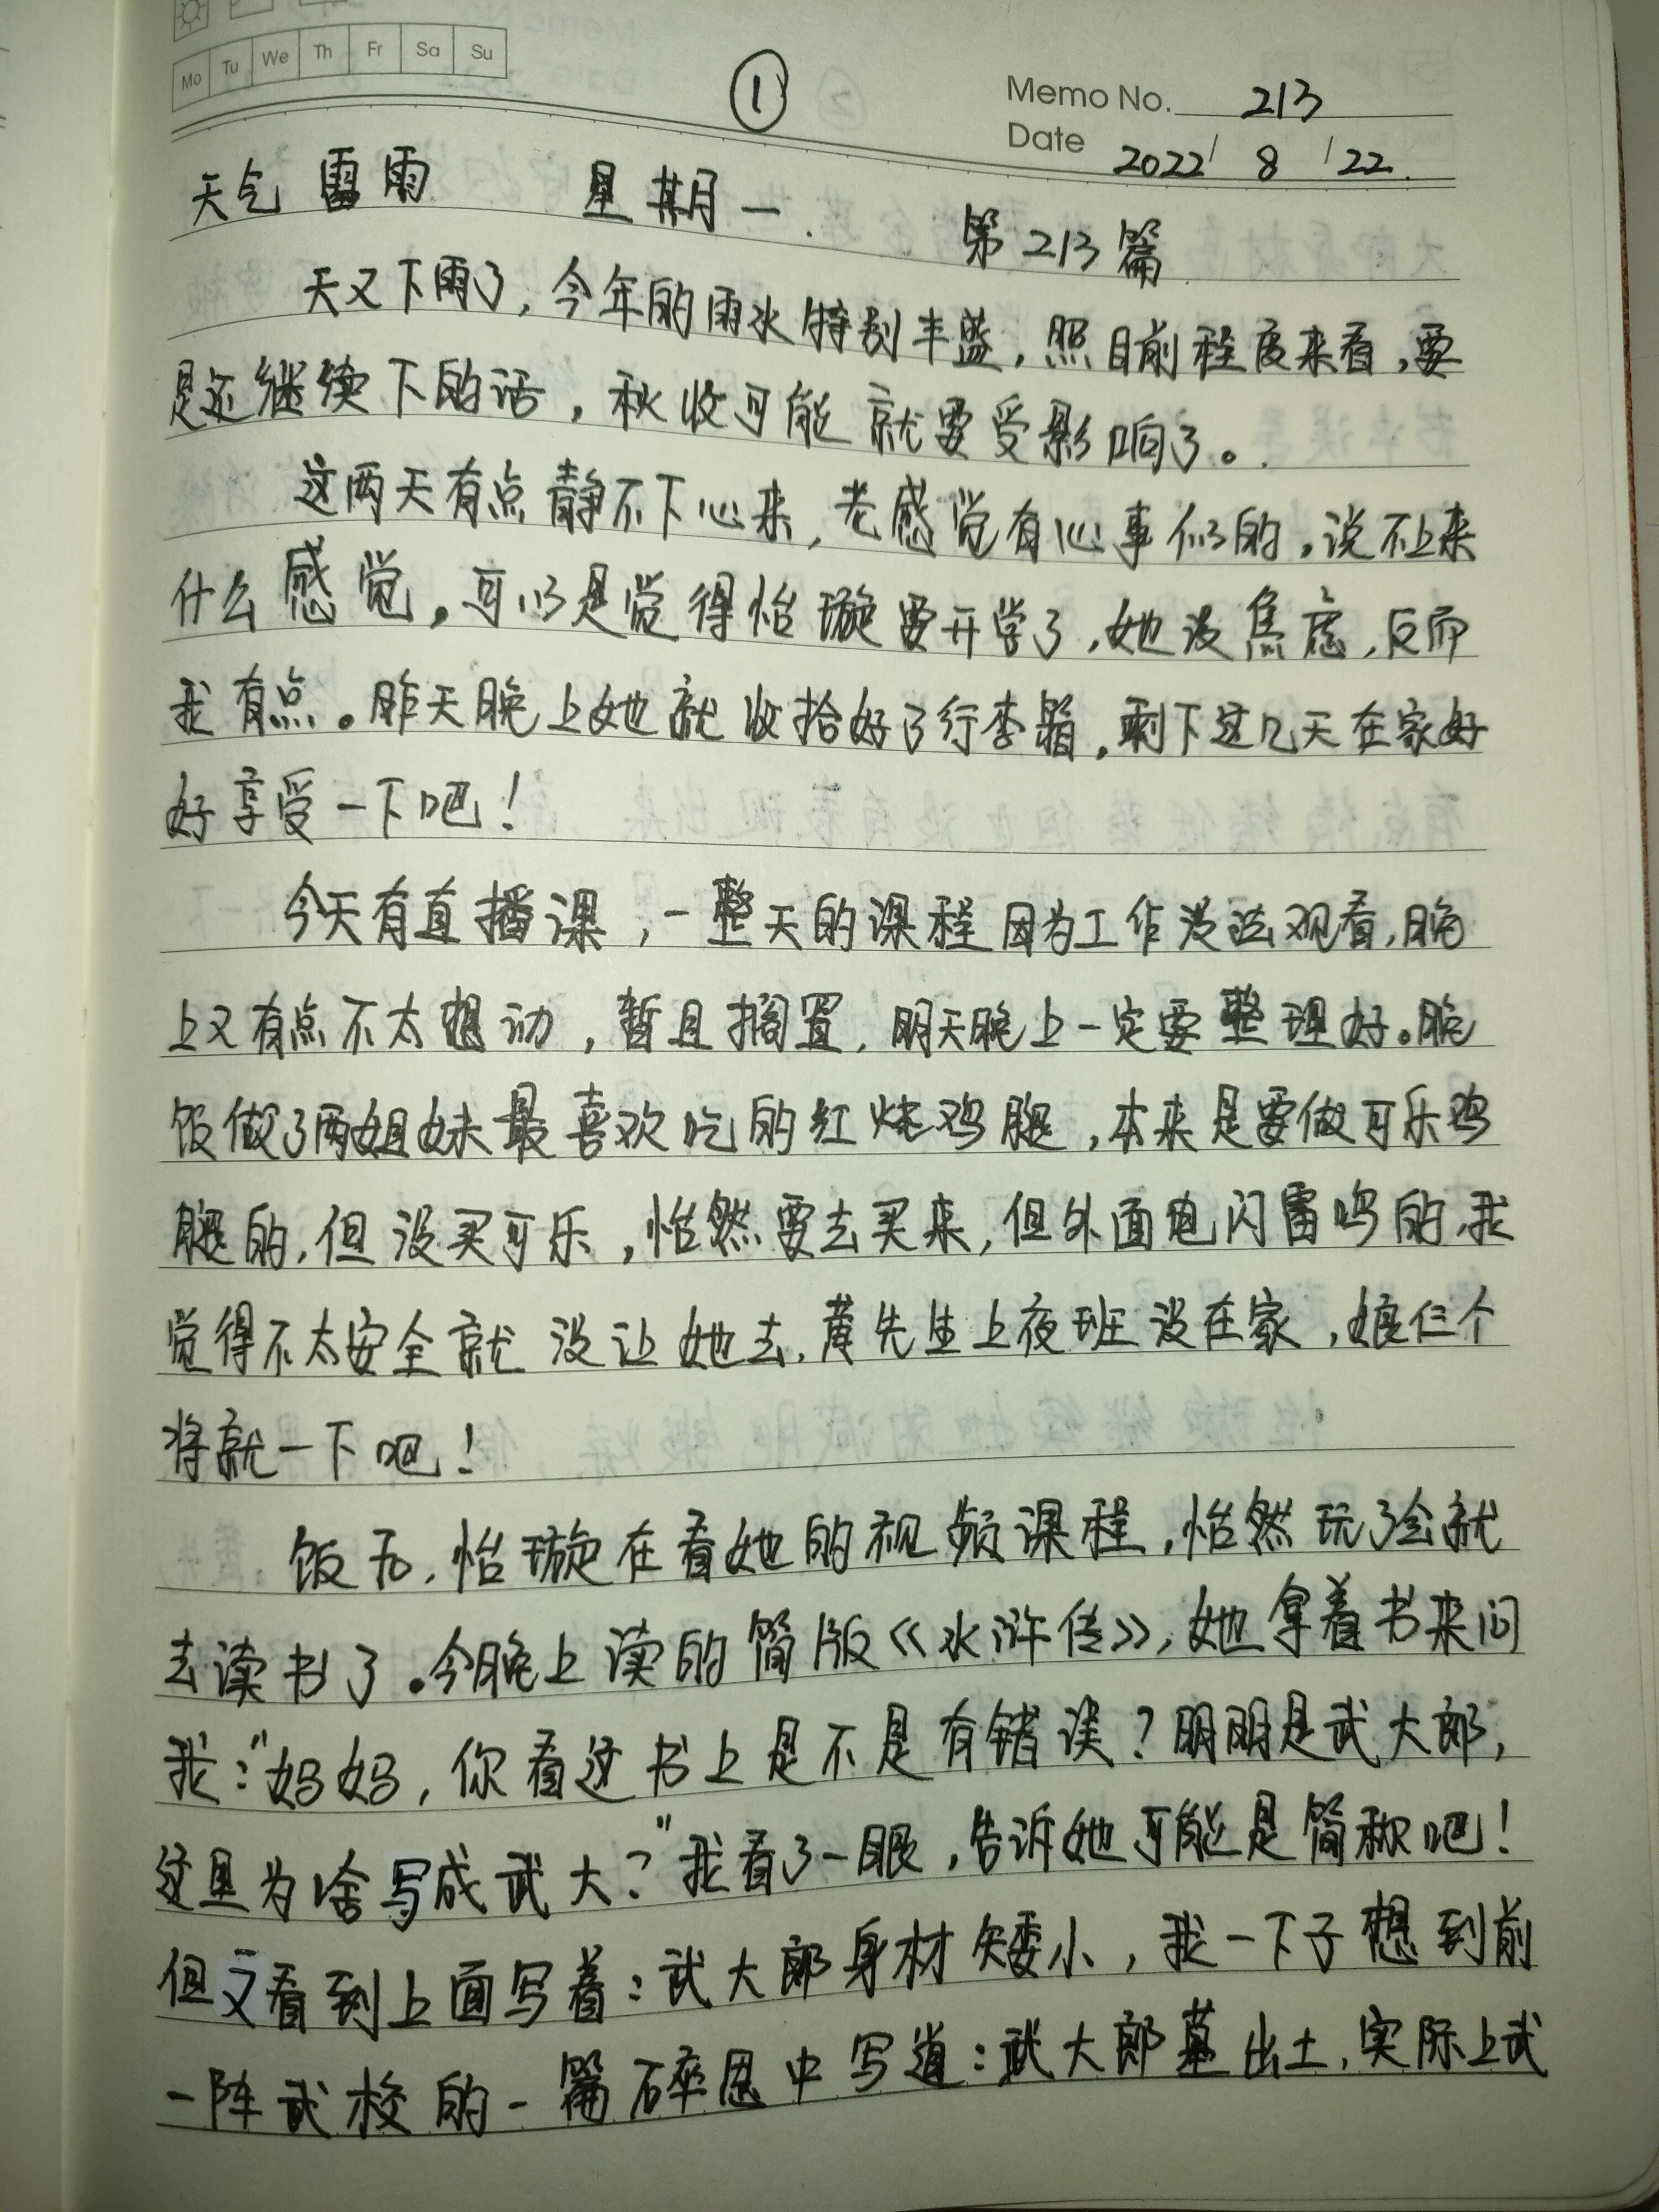 Mo Tu We Th Fr Sa Su
①
Memo No. 213
Date 2022/ 8 /22.
天气 雷雨 星期一. 第213篇
天又下雨了,今年的雨水特别丰盛,照目前程度来看,要
是还继续下的话,秋收可能就要受影响了。
这两天有点静不下心来,老感觉有心事似的,说不上来
什么感觉。可以是觉得怡璇要开学了,她没焦虑,反而
我有点。昨天晚上她就收拾好了行李箱,剩下这几天在家好
好享受一下吧!
今天有直播课,一整天的课程因为工作没法观看,晚
上又有点不太想动,暂且搁置,明天晚上一定要整理好。晚
饭做了两姐妹最喜欢吃的红烧鸡腿,本来是要做可乐鸡
腿的,但没买可乐,怡然要去买来,但外面电闪雷鸣的,我
觉得不太安全就没让她去,黄先生上夜班没在家,娘仨个
将就一下吧!
饭后,怡璇在看她的视频课程,怡然玩了会就
去读书了。今晚上读的简版《水浒传》,她拿着书来问
我:“妈妈,你看这书上是不是有错误?明明是武大郎,
这里为啥写成武大?”我看了一眼,告诉她可能是简称吧!
但又看到上面写着:武大郎身材矮小,我一下子想到前
一阵武校的一篇碎思中写道:武大郎墓出土,实际上武